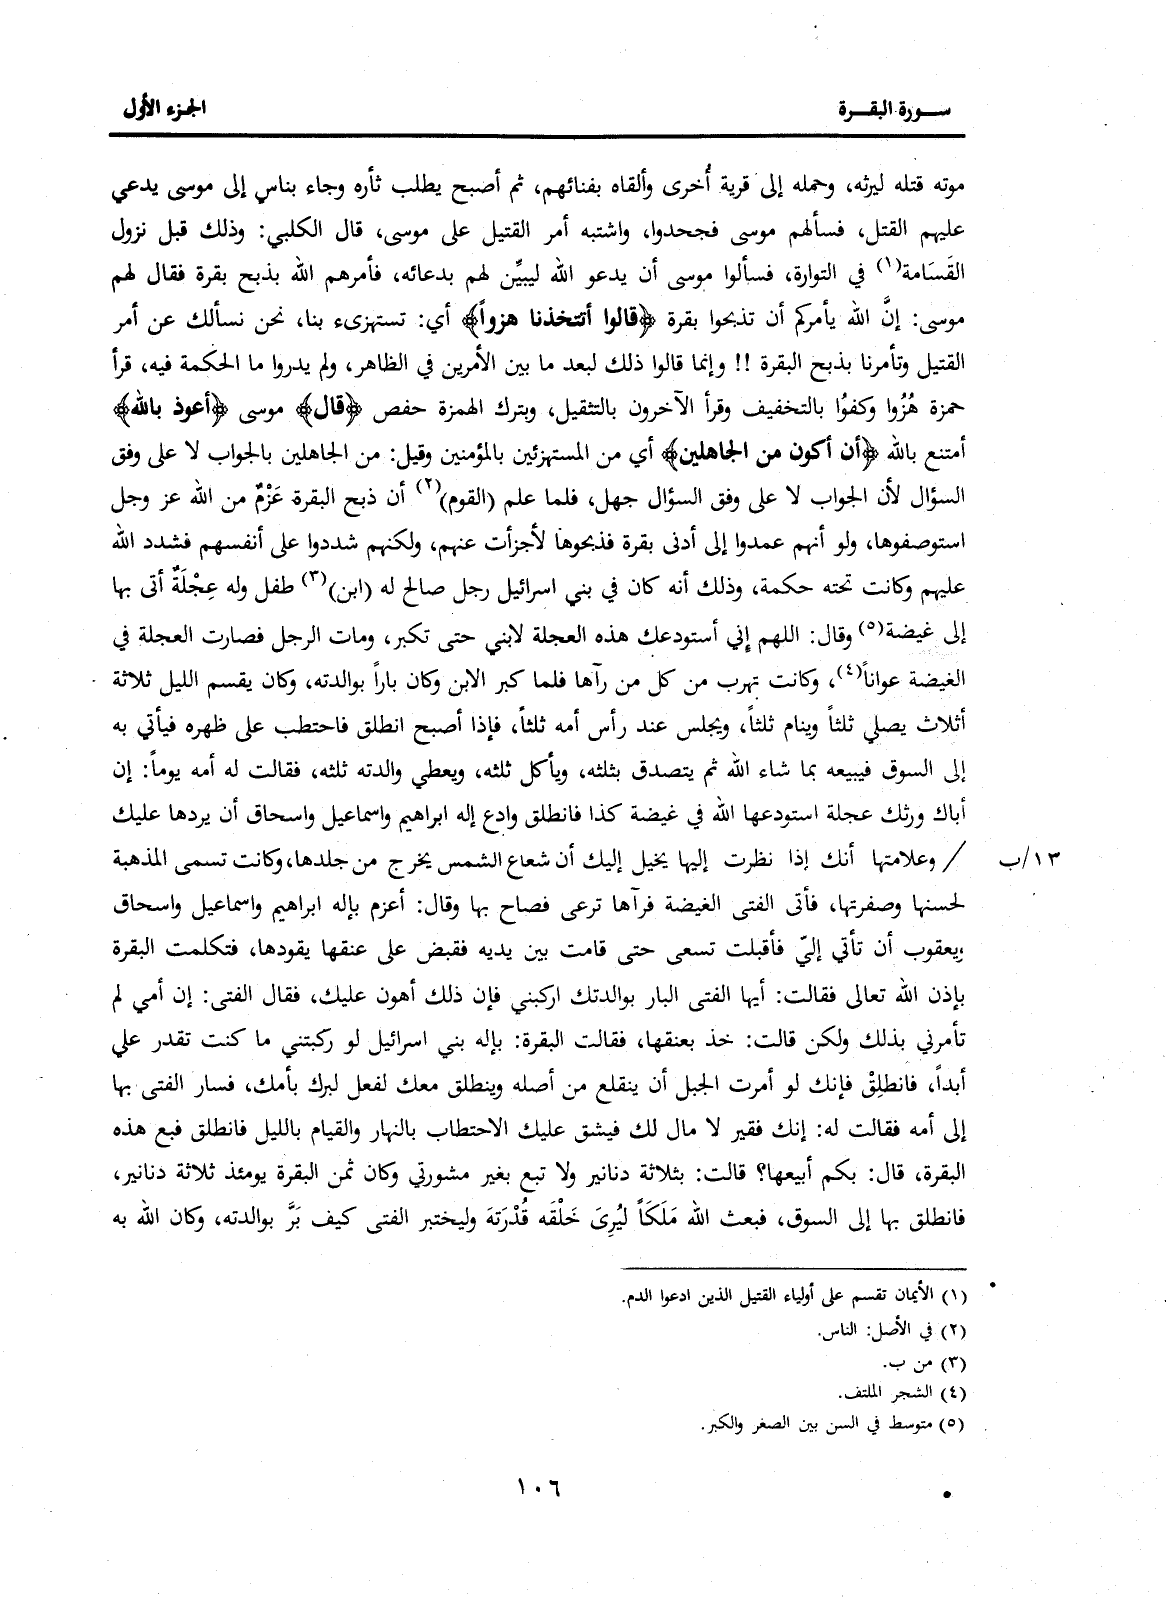 سـورة البقـرة
الجزء الأول
موته قتله ليرثه، وحمله إلى قرية أُخرى وألقاه بفنائهم، ثم أصبح يطلب ثأره وجاء بناس إلى موسى يدعي
عليهم القتل، فسألهم موسى فجحدوا، واشتبه أمر القتيل على موسى، قال الكلبي: وذلك قبل نزول
القَسَامة(١) في التوارة، فسألوا موسى أن يدعو الله ليبيِّن لهم بدعائه، فأمرهم الله بذبح بقرة فقال لهم
موسى: إنَّ الله يأمركم أن تذبحوا بقرة ﴿قالوا أتتخذنا هزواً﴾ أي: تستهزىء بنا، نحن نسألك عن أمر
القتيل وتأمرنا بذبح البقرة !! وإنما قالوا ذلك لبعد ما بين الأمرين في الظاهر، ولم يدروا ما الحكمة فيه، قرأ
حمزة هُزُوا وكفوُا بالتخفيف وقرأ الآخرون بالتثقيل، وبترك الهمزة حفص ﴿قال﴾ موسى ﴿أعوذ بالله﴾
أمتنع بالله ﴿أن أكون من الجاهلين﴾ أي من المستهزئين بالمؤمنين وقيل: من الجاهلين بالجواب لا على وفق
السؤال لأن الجواب لا على وفق السؤال جهل، فلما علم (القوم)(٢) أن ذبح البقرة عَزْمٌ من الله عز وجل
استوصفوها، ولو أنهم عمدوا إلى أدنى بقرة فذبحوها لأجزأت عنهم، ولكنهم شددوا على أنفسهم فشدد الله
عليهم وكانت تحته حكمة، وذلك أنه كان في بني اسرائيل رجل صالح له (ابن)(٣) طفل وله عِجْلَةٌ أتى بها
إلى غيضة(٥) وقال: اللهم إني أستودعك هذه العجلة لابني حتى تكبر، ومات الرجل فصارت العجلة في
الغيضة عواناً(٤)، وكانت تهرب من كل من رآها فلما كبر الابن وكان باراً بوالدته، وكان يقسم الليل ثلاثة
أثلاث يصلي ثلثاً وينام ثلثاً، ويجلس عند رأس أمه ثلثاً، فإذا أصبح انطلق فاحتطب على ظهره فيأتي به
إلى السوق فيبيعه بما شاء الله ثم يتصدق بثلثه، ويأكل ثلثه، ويعطي والدته ثلثه، فقالت له أمه يوماً: إن
أباك ورثك عجلة استودعها الله في غيضة كذا فانطلق وادع إله ابراهيم واسماعيل واسحاق أن يردها عليك
١٣/ب / وعلامتها أنك إذا نظرت إليها يخيل إليك أن شعاع الشمس يخرج من جلدها، وكانت تسمى المذهبة
لحسنها وصفرتها، فأتى الفتى الغيضة فرآها ترعى فصاح بها وقال: أعزم بإله ابراهيم واسماعيل واسحاق
ويعقوب أن تأتي إليّ فأقبلت تسعى حتى قامت بين يديه فقبض على عنقها يقودها، فتكلمت البقرة
بإذن الله تعالى فقالت: أيها الفتى البار بوالدتك اركبني فإن ذلك أهون عليك، فقال الفتى: إن أمي لم
تأمرني بذلك ولكن قالت: خذ بعنقها، فقالت البقرة: بإله بني اسرائيل لو ركبتني ما كنت تقدر علي
أبداً، فانطلِقْ فإنك لو أمرت الجبل أن ينقلع من أصله وينطلق معك لفعل لبرك بأمك، فسار الفتى بها
إلى أمه فقالت له: إنك فقير لا مال لك فيشق عليك الاحتطاب بالنهار والقيام بالليل فانطلق فبع هذه
البقرة، قال: بكم أبيعها؟ قالت: بثلاثة دنانير ولا تبع بغير مشورتي وكان ثمن البقرة يومئذ ثلاثة دنانير،
فانطلق بها إلى السوق، فبعث الله مَلَكَاً ليُرِىَ خَلْقَه قُدْرَتهَ وليختبر الفتى كيف بَرَّ بوالدته، وكان الله به
(١) الأيمان تقسم على أولياء القتيل الذين ادعوا الدم.
(٢) في الأصل: الناس.
(٣) من ب.
(٤) الشجر الملتف.
(٥) متوسط في السن بين الصغر والكبر.
١٠٦